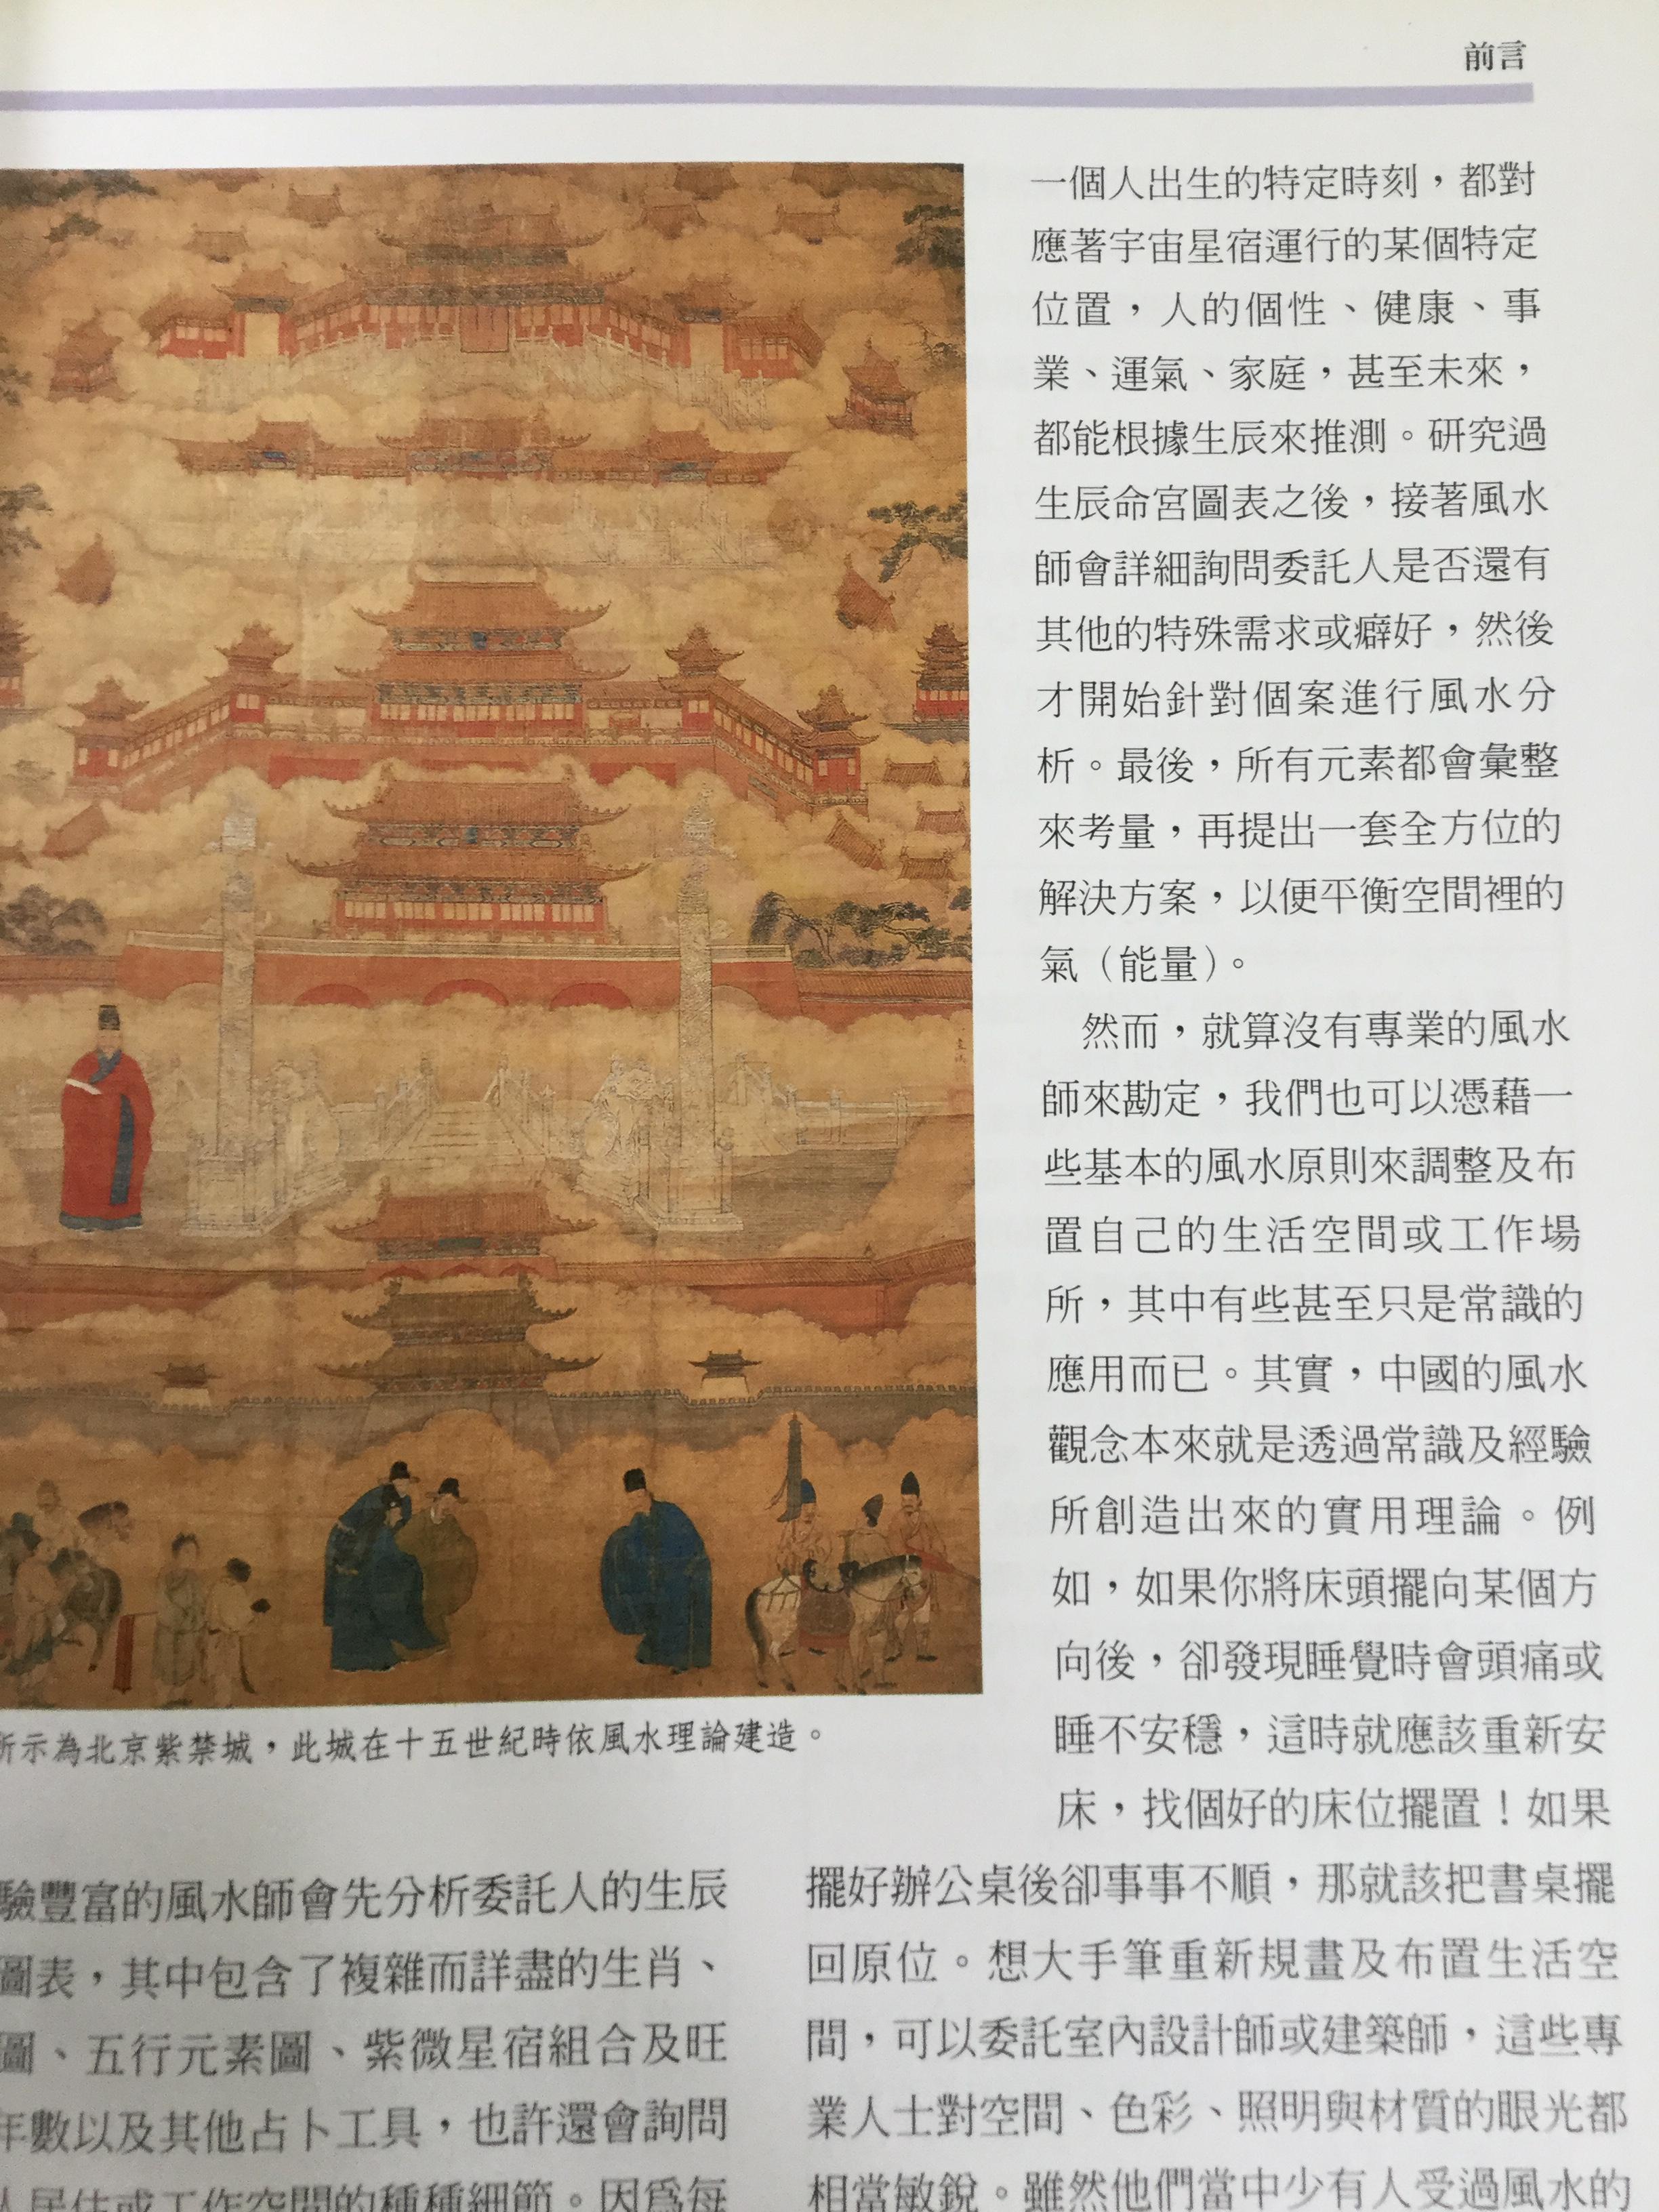 前言
所示為北京紫禁城，此城在十五世紀時依風水理論建造。
驗豐富的風水師會先分析委託人的生辰
圖表，其中包含了複雜而詳盡的生肖、
圖、五行元素圖、紫微星宿組合及旺
年數以及其他占卜工具，也許還會詢問
人居住或工作空間的種種細節。因為每
一個人出生的特定時刻，都對
應著宇宙星宿運行的某個特定
位置，人的個性、健康、事
業、運氣、家庭，甚至未來，
都能根據生辰來推測。研究過
生辰命宮圖表之後，接著風水
師會詳細詢問委託人是否還有
其他的特殊需求或癖好，然後
才開始針對個案進行風水分
析。最後，所有元素都會彙整
來考量，再提出一套全方位的
解決方案，以便平衡空間裡的
氣（能量）。
然而，就算沒有專業的風水
師來勘定，我們也可以憑藉一
些基本的風水原則來調整及布
置自己的生活空間或工作場
所，其中有些甚至只是常識的
應用而已。其實，中國的風水
觀念本來就是透過常識及經驗
所創造出來的實用理論。例
如，如果你將床頭擺向某個方
向後，卻發現睡覺時會頭痛或
睡不安穩，這時就應該重新安
床，找個好的床位擺置！如果
擺好辦公桌後卻事事不順，那就該把書桌擺
回原位。想大手筆重新規畫及布置生活空
間，可以委託室內設計師或建築師，這些專
業人士對空間、色彩、照明與材質的眼光都
相當敏銳。雖然他們當中少有人受過風水的